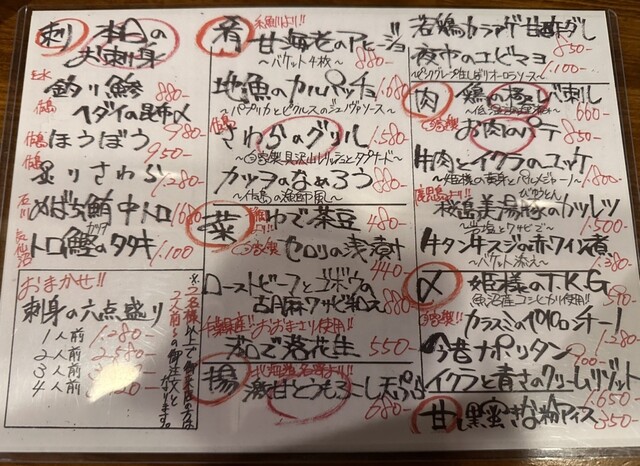 刺 本日の
お刺身
釣り鯵 880-
ヘダイの昆布〆 980-
ほうぼう 950-
炙りさわら 1.280-
めばち鮪中トロ 1.680
トロ鰹のタタキ 1.100
おまかせ!!
刺身の六点盛り
1人前 1.280-
2人前 2.580-
3人前
4人前
※二名様以上で御来店の方は
2人前からの御注文と
なります。
肴 甘海老のアヒージョ
〜バケット4枚〜 880-
地魚のカルパッチョ 1.680
〜パプリカとピクルスのジェノヴァソース〜
さわらのグリル 1.580-
カツオのなめろう 880-
〜伊島の漁師風〜
菜 ゆで茶豆 480-
セロリの浅漬け 440-
ローストビーフとゴボウの
古胡麻ワサビ和え 880-
千葉県産!!おおまさり使用!!
ゆで落花生 550-
揚 激甘とうもろこし天ぷら
680-
若鶏のカラアゲ甘酢ダレ
850-
夜市のエビマヨ
1.100-
肉 鶏の極レバ刺し
660-
お肉のパテ
850-
牛肉とイクラのユッケ
〜姫様の黄身とパルメジャーノ〜 1.800-
鹿児島より!!
桜美湯豚のカツレツ
〜岩塩とワサビで〜 1.500-
牛タン牛スジの赤ワイン煮
〜バケット添え〜 1.380-
〆 姫様のT.K.G
魚沼産コシヒカリ使用!! 590-
カラスミのペペロンチーノ
今昔ナポリタン 900-
イクラと青さのクリームリゾット
1.650
甘 黒蜜きな粉アイス 350-